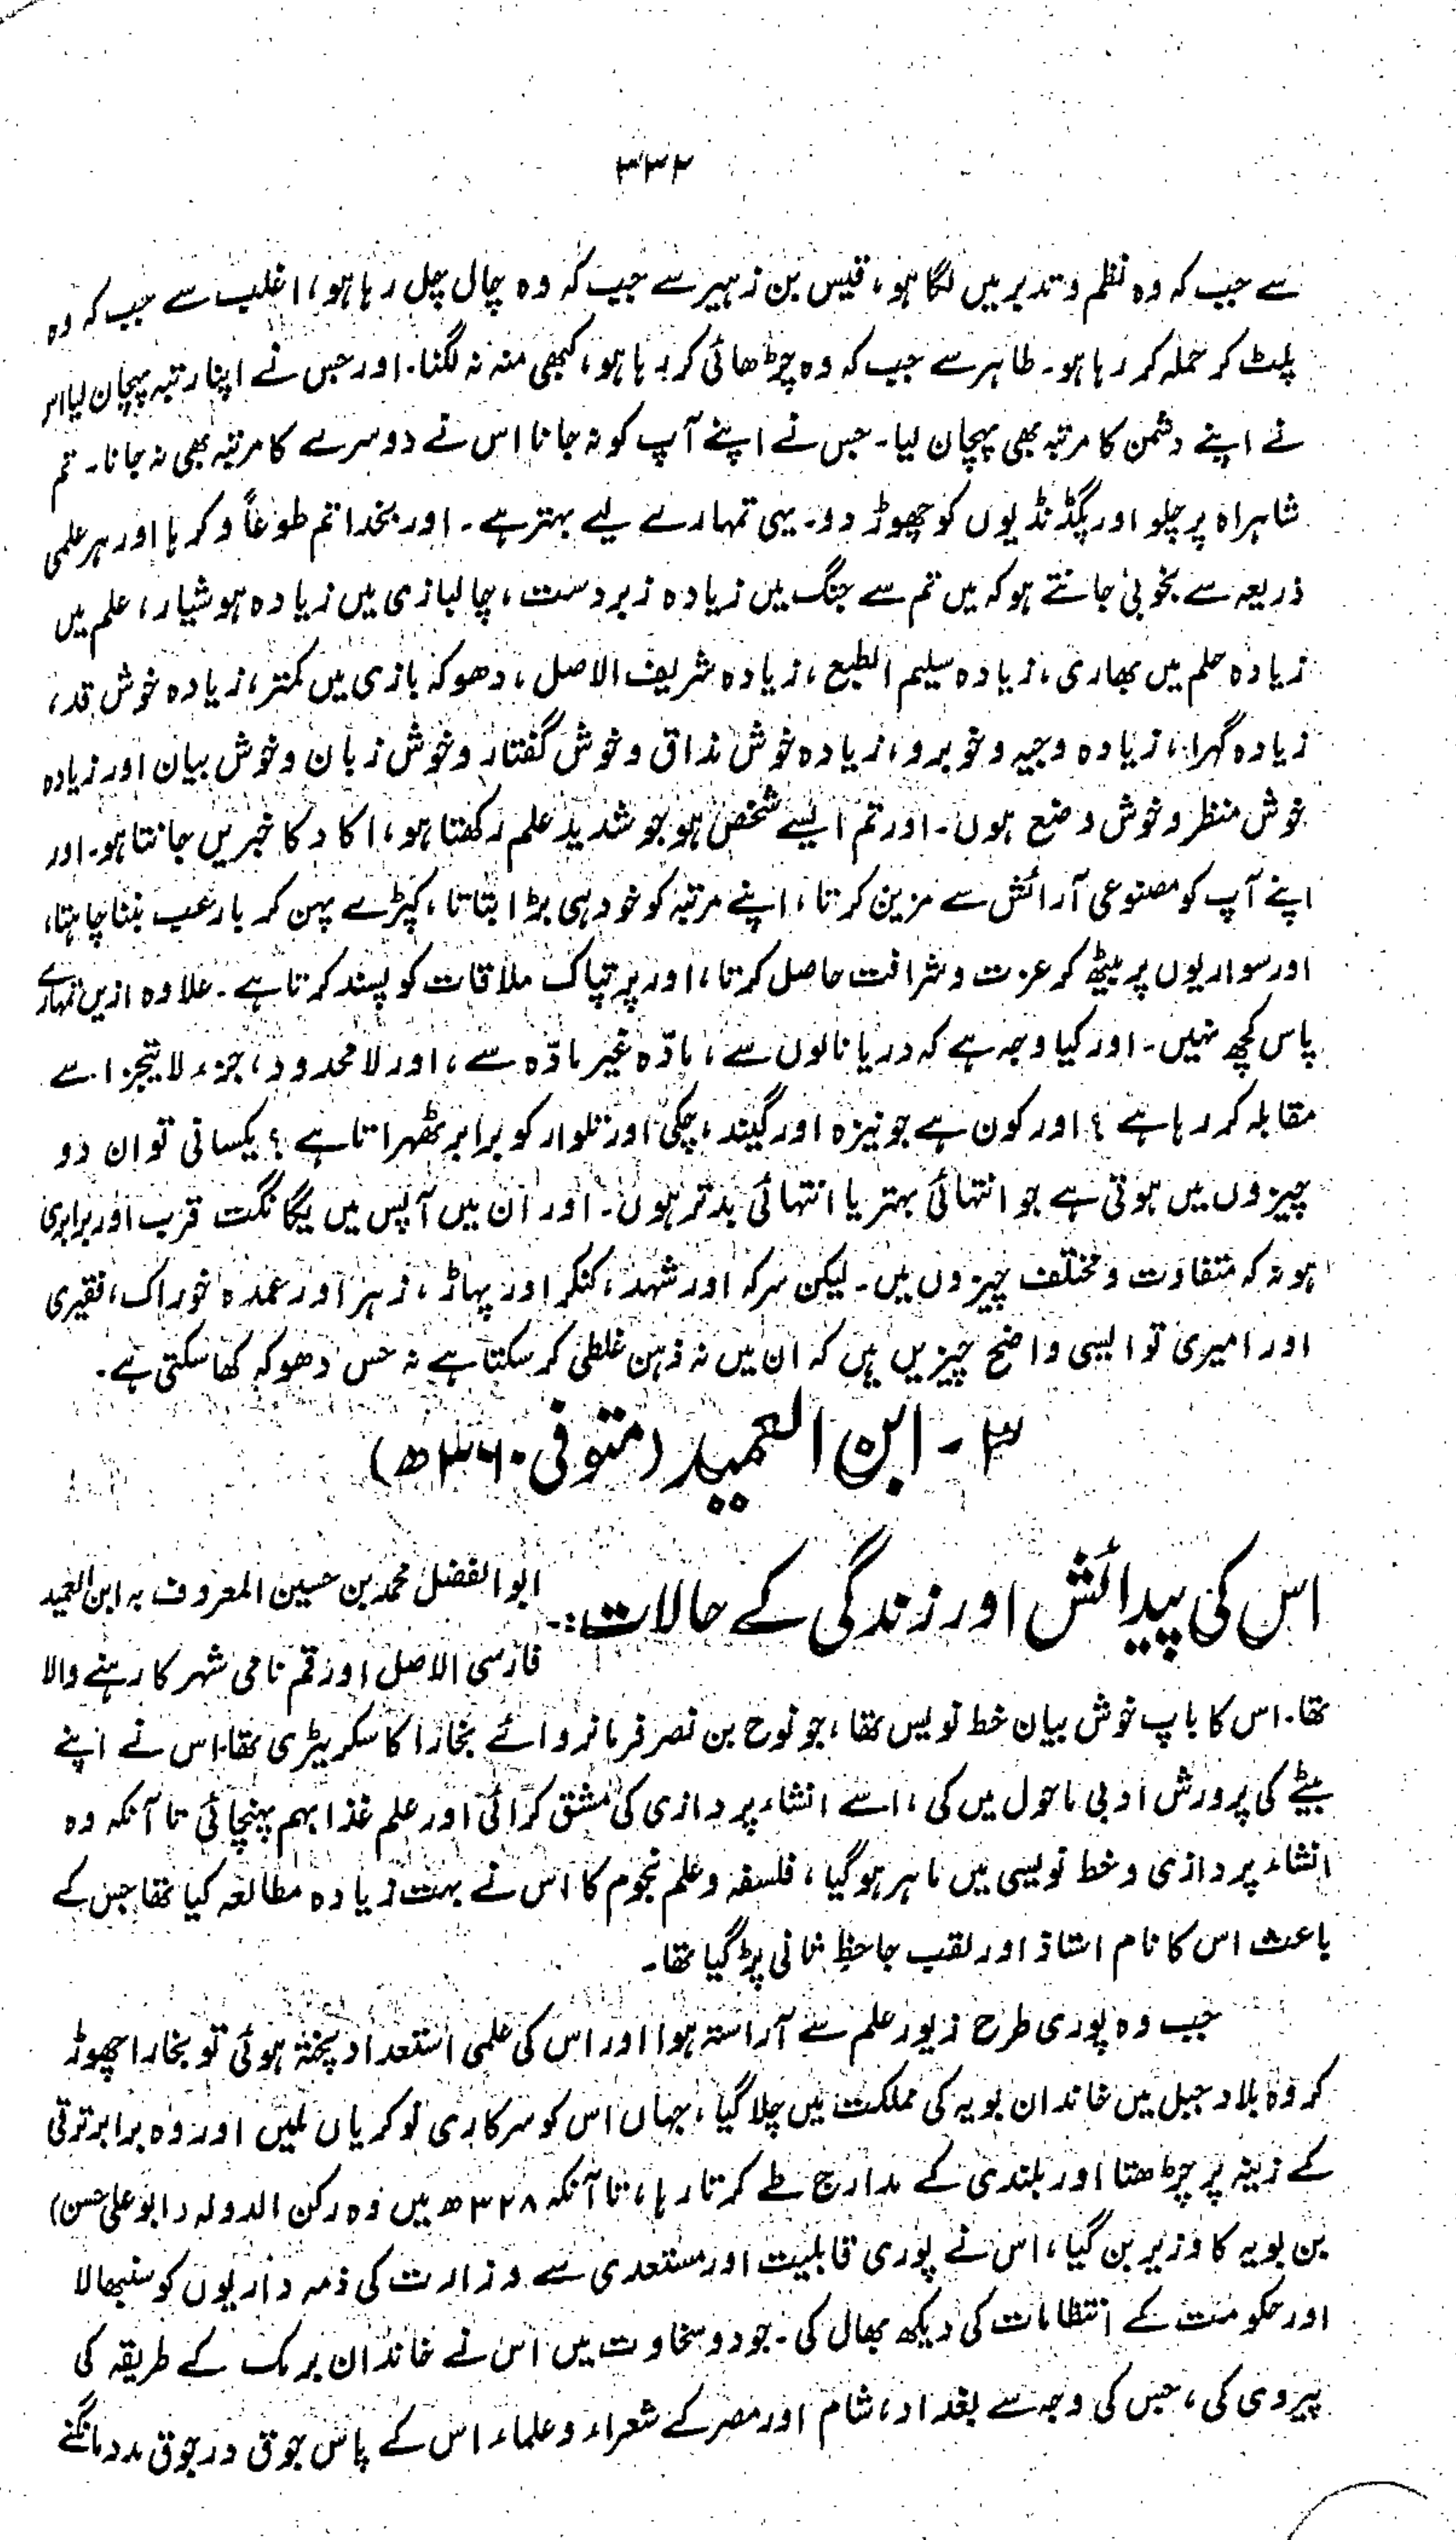 ۳۳۲
سے جب کہ وہ نظم و تدبر میں لگا ہو، قیس بن زہیر سے جب کہ وہ چال چل رہا ہو، اغلب سے جب کہ وہ
پلٹ کر حملہ کر رہا ہو۔ طاہر سے جب کہ وہ چڑھائی کر رہا ہو، کبھی منہ نہ لگنا۔ اور جس نے اپنا رتبہ پہچان لیا اس
نے اپنے دشمن کا مرتبہ بھی پہچان لیا۔ جس نے اپنے آپ کو نہ جانا اس نے دوسرے کا مرتبہ بھی نہ جانا۔ تم
شاہراہ پر چلو اور پگڈنڈیوں کو چھوڑ دو۔ یہی تمہارے لیے بہتر ہے۔ اور بخدا تم طوعاً و کرہا اور ہر علمی
ذریعہ سے بخوبی جانتے ہو کہ میں تم سے جنگ میں زیادہ زبردست، چالبازی میں زیادہ ہوشیار، علم میں
زیادہ حلم میں بھاری، زیادہ سلیم الطبع، زیادہ شریف الاصل، دھوکہ بازی میں کمتر، زیادہ خوش قد،
زیادہ گہرا، زیادہ وجیہ و خوبرو، زیادہ خوش مذاق و خوش گفتار و خوش زبان و خوش بیان اور زیادہ
خوش منظر و خوش وضع ہوں۔ اور تم ایسے شخص ہو جو شدید علم رکھتا ہو، اکا دکا خبریں جانتا ہو۔ اور
اپنے آپ کو مصنوعی آرائش سے مزین کرتا، اپنے مرتبہ کو خود ہی بڑا بتاتا، کپڑے پہن کر بارعب بننا چاہتا،
اور سواریوں پر بیٹھ کر عزت و شرافت حاصل کرتا، اور پرتپاک ملاقات کو پسند کرتا ہے۔ علاوہ ازیں تمہارے
پاس کچھ نہیں۔ اور کیا وجہ ہے کہ دریا نالوں سے، مادّہ غیر مادّہ سے، اور لا محدود، جزء لا یتجزا سے
مقابلہ کر رہا ہے؟ اور کون ہے جو نیزہ اور گیند، چکی اور تلوار کو برابر ٹھہراتا ہے؟ یکسانی تو ان دو
چیزوں میں ہوتی ہے جو انتہائی بہتر یا انتہائی بدتر ہوں۔ اور ان میں آپس میں یگانگت قرب اور برابری
ہو نہ کہ متفاوت و مختلف چیزوں میں۔ لیکن سرکہ اور شہد، کنکر اور پہاڑ، زہر اور عمدہ خوراک، فقیری
اور امیری تو ایسی واضح چیزیں ہیں کہ ان میں نہ ذہن غلطی کر سکتا ہے نہ حس دھوکہ کھا سکتی ہے۔
۳۔ ابن العمید (متوفی ۳۶۰ھ)
اس کی پیدائش اور زندگی کے حالات:۔ ابو الفضل محمد بن حسین المعروف بہ ابن العمید
فارسی الاصل اور قم نامی شہر کا رہنے والا
تھا۔ اس کا باپ خوش بیان خط نویس تھا، جو نوح بن نصر فرمانروائے بخارا کا سکریٹری تھا۔ اس نے اپنے
بیٹے کی پرورش ادبی ماحول میں کی، اسے انشاء پردازی کی مشق کرائی اور علم غذا بہم پہنچائی تا آنکہ وہ
انشاء پردازی و خط نویسی میں ماہر ہو گیا، فلسفہ و علم نجوم کا اس نے بہت زیادہ مطالعہ کیا تھا جس کے
باعث اس کا نام استاذ اور لقب جاحظِ ثانی پڑ گیا تھا۔
جب وہ پوری طرح زیور علم سے آراستہ ہوا اور اس کی علمی استعداد پختہ ہوئی تو بخارا چھوڑ
کر وہ بلاد جبل میں خاندان بویہ کی مملکت میں چلا گیا، جہاں اس کو سرکاری نوکریاں ملیں اور وہ برابر ترقی
کے زینہ پر چڑھتا اور بلندی کے مدارج طے کرتا رہا، تا آنکہ ۳۲۸ھ میں وہ رکن الدولہ (ابو علی حسن)
بن بویہ کا وزیر بن گیا، اس نے پوری قابلیت اور مستعدی سے وزارت کی ذمہ داریوں کو سنبھالا
اور حکومت کے انتظامات کی دیکھ بھال کی۔ جود و سخاوت میں اس نے خاندان برمک کے طریقہ کی
پیروی کی، جس کی وجہ سے بغداد، شام اور مصر کے شعراء و علماء اس کے پاس جوق در جوق مدد مانگنے